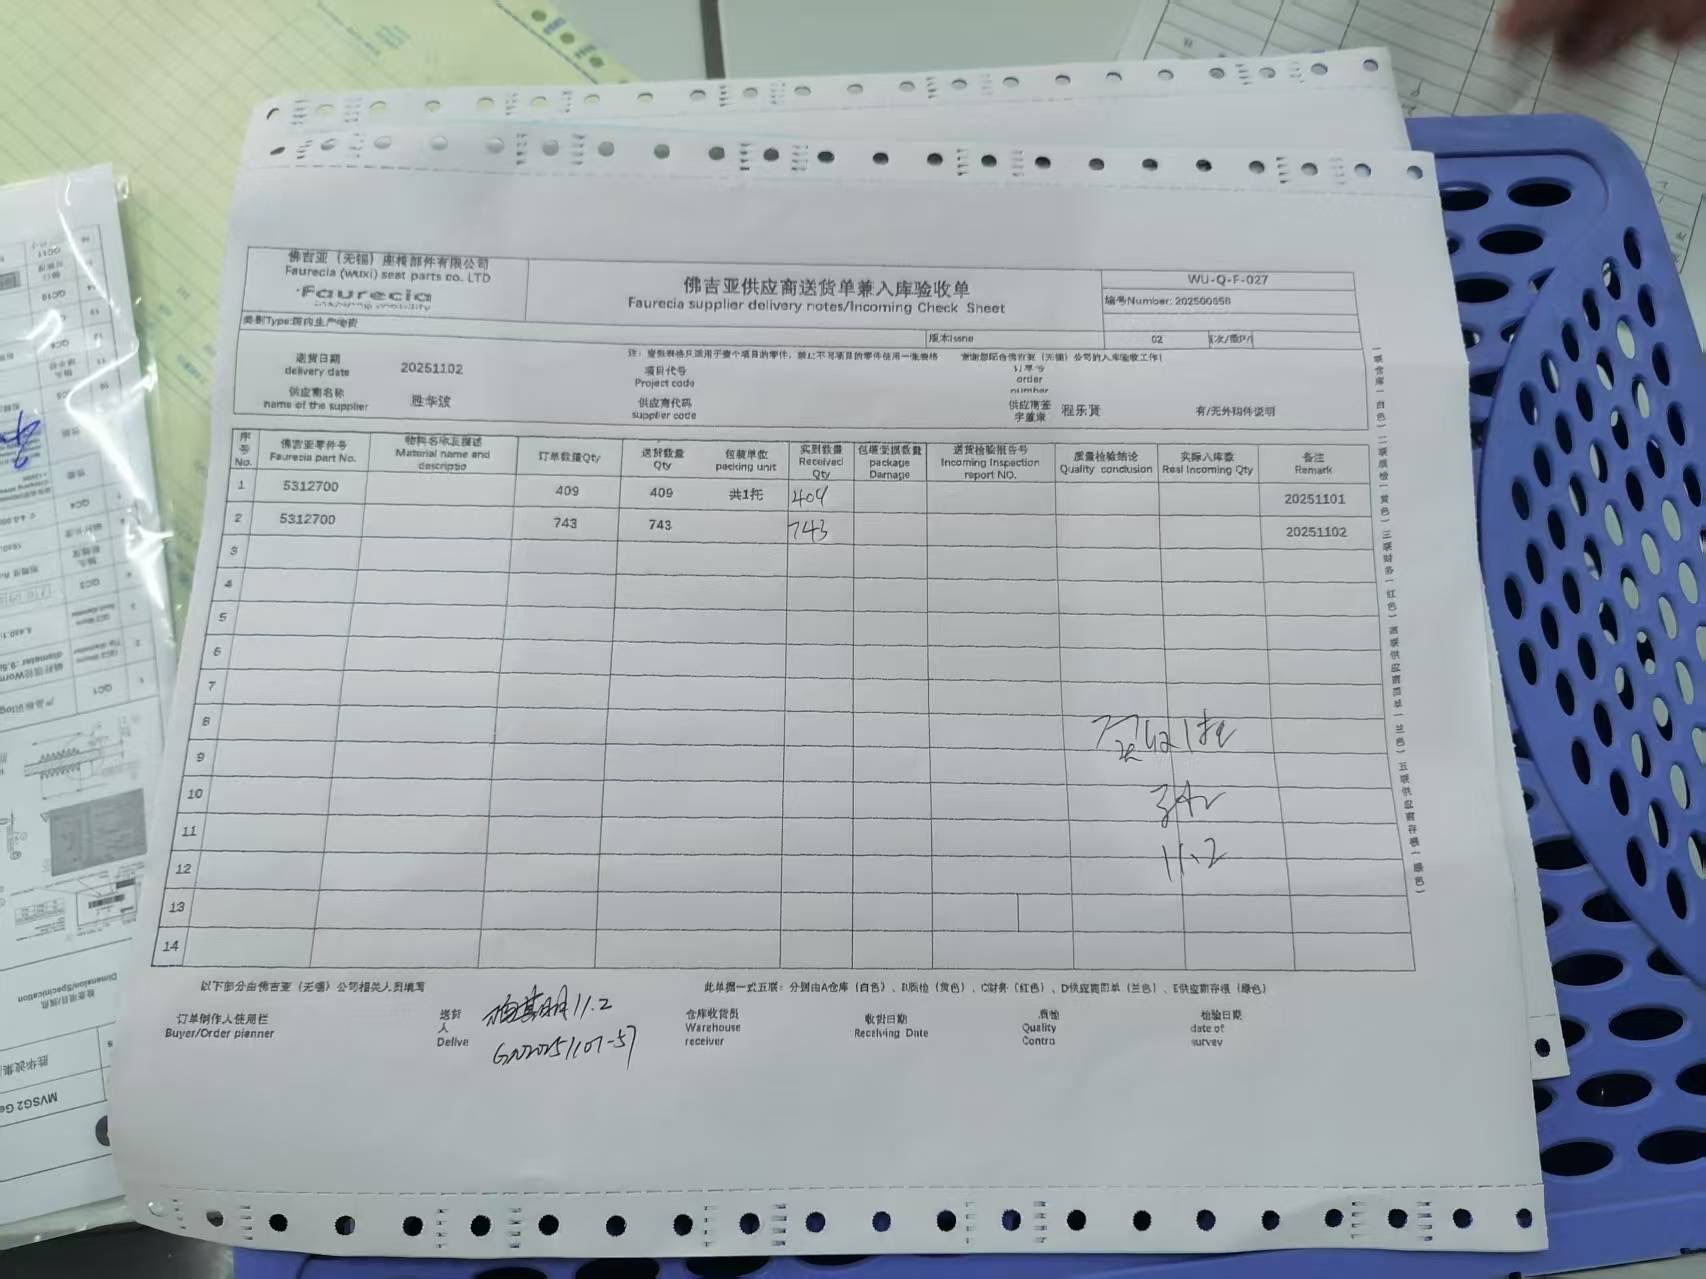 佛吉亚（无锡）座椅部件有限公司
Faurecia (wuxi) seat parts co. LTD
Faurecia
佛吉亚供应商送货单兼入库验收单
Faurecia supplier delivery notes/Incoming Check Sheet
WU-Q-F-027
编号Number: 202500858
类别Type:国内生产物资
版本Issne 02
送货日期 20251102
delivery date
项目代号
Project code
订单号
order
number
供应商名称 胜华波
name of the supplier
供应商代码
supplier code
供应商签 程乐贤
有/无外构件说明
序号 佛吉亚零件号 物料名称及描述 订单数量Qty 送货数量 包装单位 实到数量 包装受损数量 送货检验报告号 质量检验结论 实际入库数 备注
No. Faurecia part No. Material name and descriptio Qty packing unit Received Qty package Damage Incoming Inspection report NO. Quality conclusion Real Incoming Qty Remark
1 5312700 409 409 共1托 409 20251101
2 5312700 743 743 743 20251102
3
4
5
6
7
8
9
10
11
12
13
14
11.2
以下部分由佛吉亚（无锡）公司相关人员填写
此单据一式五联：分别由A仓库（白色）、B质检（黄色）、C财务（红色）、D供应商回单（兰色）、E供应商存根（绿色）
订单制作人使用栏
Buyer/Order planner
送货人 11.2
Delive
仓库收货员
Warehouse
receiver
收货日期
Receiving Date
质检
Quality
Contro
检验日期
date of
survey